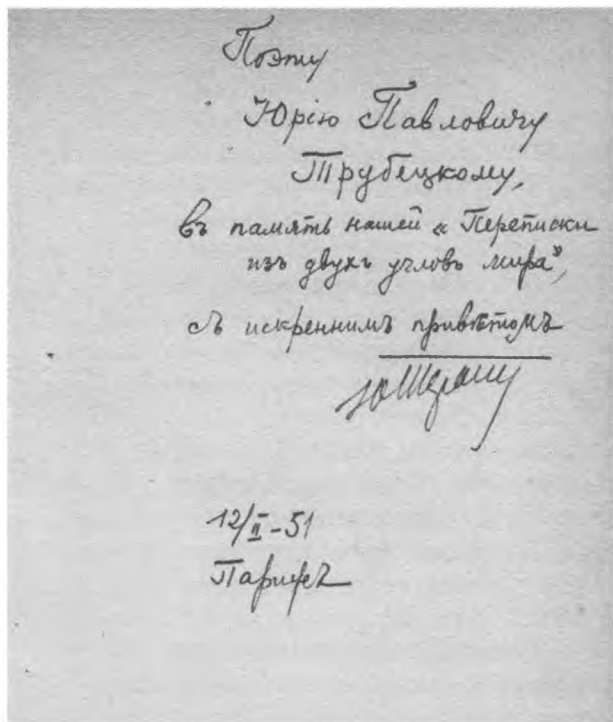 Поэту
Юрію Павловичу
Трубецкому,
въ память нашей « Переписки
изъ двухъ угловъ мира”,
съ искреннимъ привѣтомъ
12/II-51
Парижъ